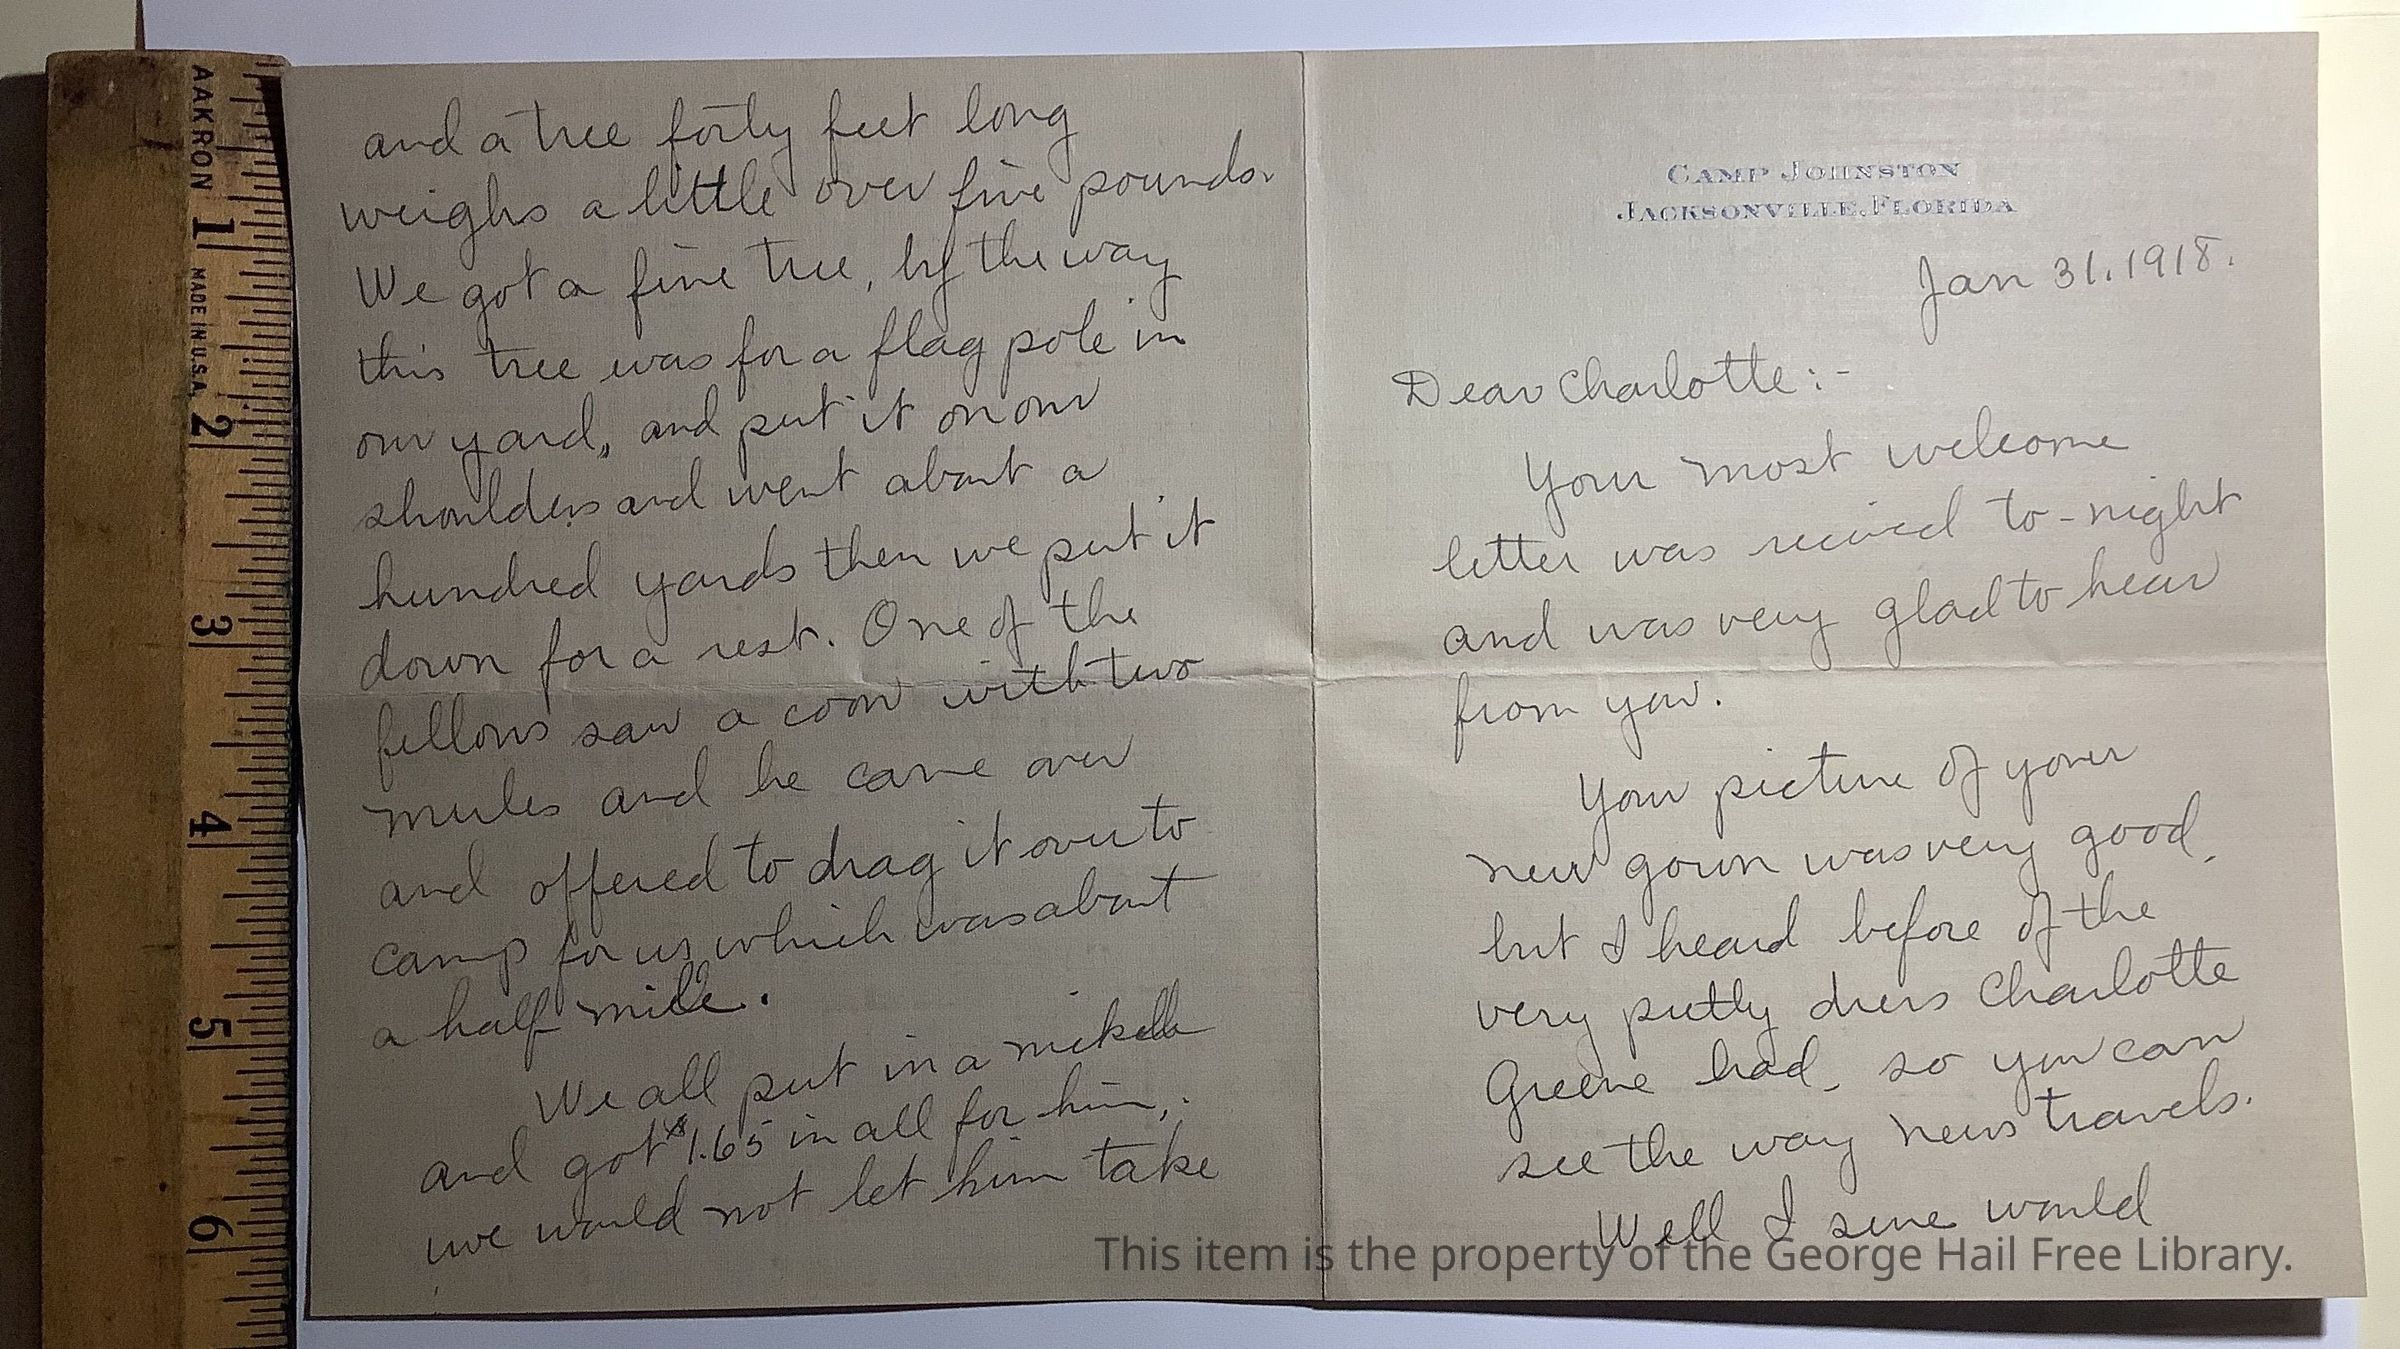 and a tree forty feet long
weighs a little over five pounds.
We got a fine tree, by the way
this tree was for a flag pole in
our yard, and put it on our
shoulders and went about a
hundred yards then we put it
down for a rest. One of the
fellows saw a coon with two
mules and he came over
and offered to drag it over to
camp for us which was about
a half mile.
We all put in a nickelle
and got $1.65 in all for him,.
we would not let him take
CAMP JOHNSTON
JACKSONVILLE, FLORIDA
Jan 31. 1918.
Dear Charlotte:-
Your most welcome
letter was recived to-night
and was very glad to hear
from you.
Your picture of your
new gown was very good,
but I heard before of the
very pretty dress Charlotte
Greene had, so you can
see the way news travels.
Well I sure would
This item is the property of the George Hail Free Library.
AAKRON
MADE IN U.S.A.
1
2
3
4
5
6